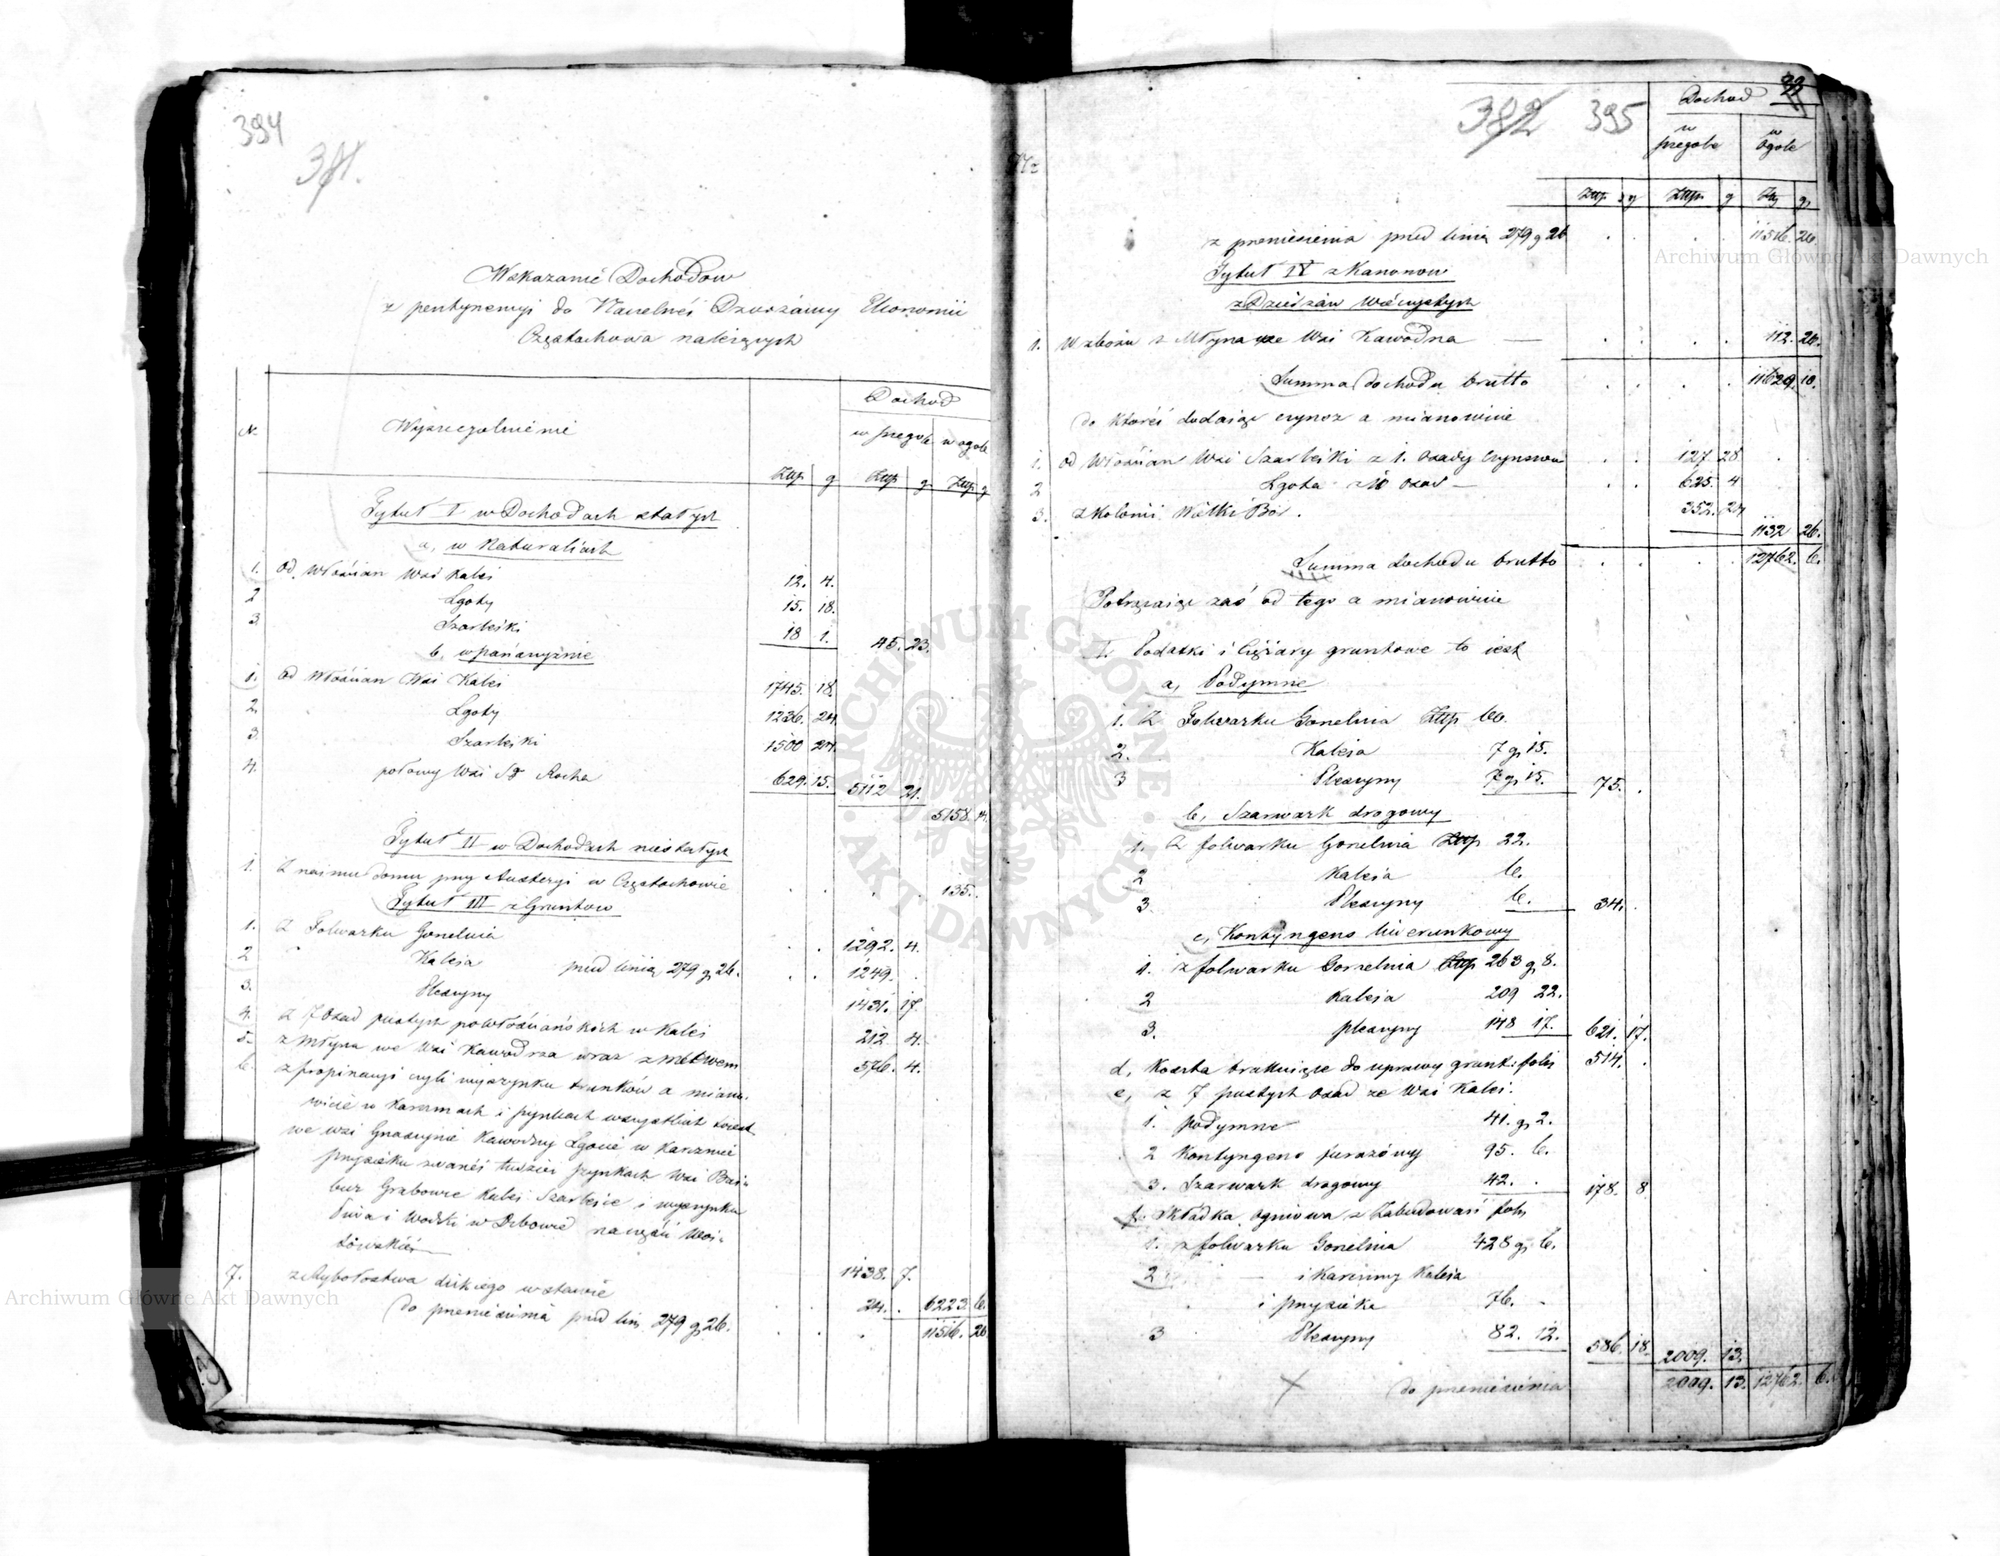 394
381.
Wskazanié Dochodow
z pertynencyi do Naczelnéi Dzierżawy Ekonomii
Częstochowa należących
Dochod
N. Wyszczególnienié w szczegole w ogole
Złtp g Złtp g Złtp g
Tytuł I w Dochodach stałych
a, w Naturaliach
1. Od Włościan Wsi Kalei 12. 4.
2 Lgoty 15. 18.
3. Szarleiki 18 1. 45. 23.
b. w pańszczyznie
1. Od Włościan Wsi Kalei 1745. 18.
2. Lgoty 1236. 24.
3. Szarleiki 1500 24.
4. połowy Wsi Sgo Rocha 629. 15. 5112 21.
5158. 14.
Tytuł II w Dochodach niestałych
1. Z naimu domu przy Austeryi w Częstochowie . . . 135.
Tytuł III z Gruntow
1. Z Folwarku Gonelnia . . 1292. 4.
2 " Kaleia pred linią 279 g 26. . . 1249.
3. Pleszyny 1431. 17.
4. Z 7 Osad pustych powłościańskich w Kalei 212 4.
5. z Młyna we Wsi Kawodrza wraz z mlewem 576. 4.
6. z propinacyi czyli wyszynku trunków a miano-
wicié w Karczmach i szynkach wszystkich
we wsi Gnaszynié Kawodrzy Lgocié w Karczmié
przysieka zwanéi tudzież szynkach Wsi
Grabowce Kalei Szarleice i wyszynku
Piwa i Wodki w Dzbowie
7. z Rybołostwa dzikiego w stawié 1438. 7.
24. . 6223. 6.
do przeniesienia pred lin. 279 g 26. . . . 11516. 20
22
382 395
Dochod
w szczegole w Ogole
Nr
Złtp g Złtp g Złp g
z przeniesienia pred linią 279 g 26 . . . 11516. 20.
Tytuł IV z Kanonow
z Dzierżaw Wieczystych
1. W zbożu z Młyna we Wsi Kawodrza — . . . . 112. 20.
Summa dochodu brutto . . . . 11629. 10.
do któréi dodaiąc czynsz a mianowicie
1. od Włościan Wsi Szarleiki z 1. Osady czynszow . . 127. 28.
2 Lgota z 10 Osad — . . 625. 4
3. z Kolonii Wielki Bór . 352. 24
1132 26.
Summa dochodu brutto . . . . 12762. 6.
Potrąciaiąc zaś od tego a mianowicie
1. Podatki i Ciężary gruntowe to iest
a, Podymne
1. Z Folwarku Gonelnia Złtp 60.
2. Kaleia 7 g 15.
3 Pleszyny 7 g 15. 75. .
b, Szarwark drogowy
1. Z folwarku Gonelnia Złtp 22.
2 Kaleia 6.
3. Pleszyny 6. 34. .
c, Kontyngens liwerunkowy
1. z folwarku Gonelnia Złtp 263 g 8.
2 Kaleia 209 22.
3. pleszyny 148 17. 621. 17.
d, Koszta brakuiące do uprawy grunt: folw 514. .
e, z 7 pustych Osad ze Wsi Kalei.
1. podymne 41. g 2.
2 Kontyngens furażowy 95. 6.
3. Szarwark drogowy 42. . 178. 8
f. Składka Ogniowa z Zabudowań folw
1. z folwarku Gonelnia 428 g 6.
2 — i Karczmy Kaleia
i przysieka 76. -
3 Pleszyny 82. 12. 586. 18. 2009. 13.
do przeniesienia 2009. 13. 12762. 6.
Archiwum Główne Akt Dawnych
Archiwum Główne Akt Dawnych
ARCHIWUM GŁÓWNE AKT DAWNYCH